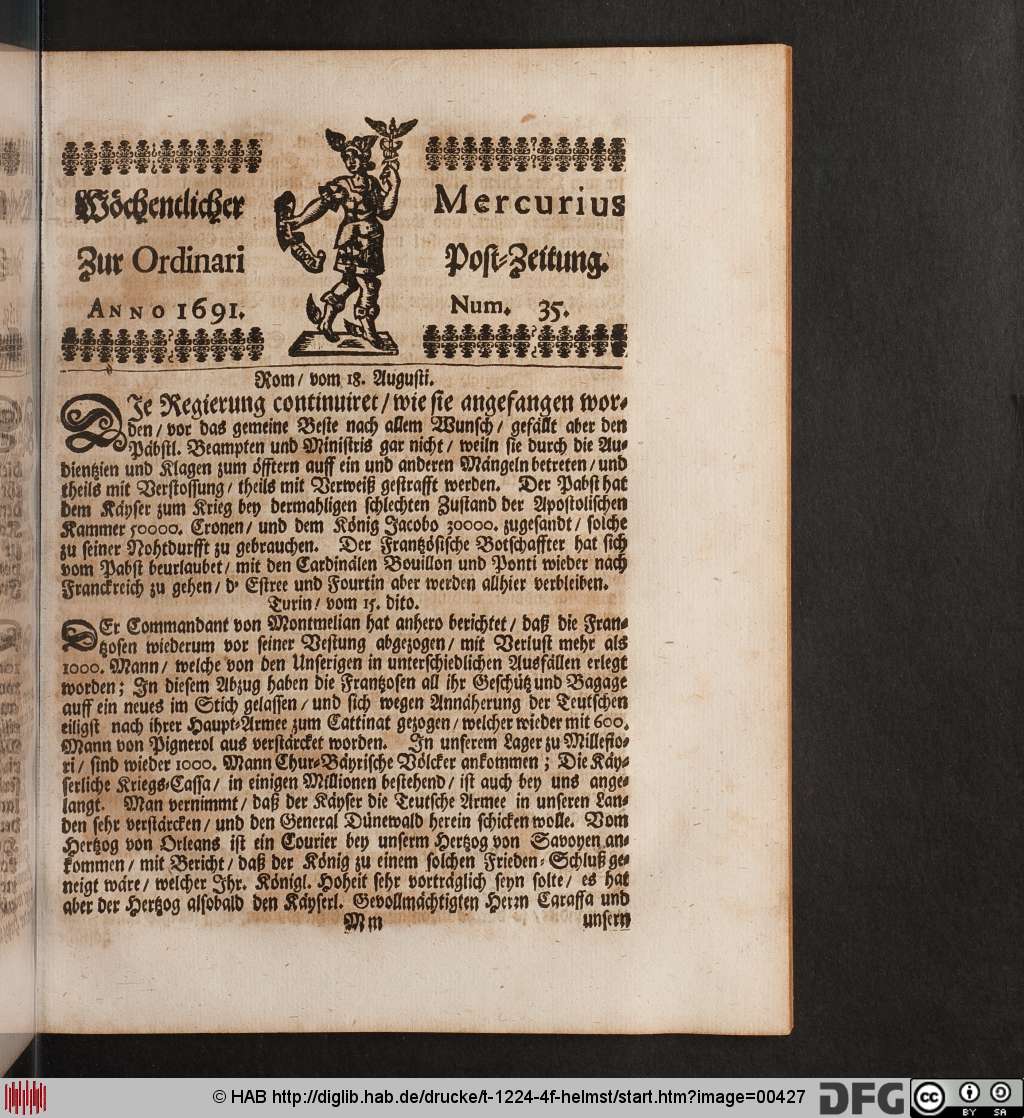 Wöchentlicher Mercurius
Zur Ordinari Post-Zeitung.
ANNO 1691. Num. 35.
Rom / vom 18. Augusti.
DIe Regierung continuiret / wie sie angefangen wor-
den / vor das gemeine Beste nach allem Wunsch / gefällt aber den
Päbstl. Beampten und Ministris gar nicht / weiln sie durch die Au-
dientzien und Klagen zum öfftern auff ein und anderen Mängeln betreten / und
theils mit Verstossung / theils mit Verweiß gestrafft werden. Der Pabst hat
dem Käyser zum Krieg bey dermahligen schlechten Zustand der Apostolischen
Kammer 50000. Cronen / und dem König Jacobo 30000. zugesandt / solche
zu seiner Nohtdurfft zu gebrauchen. Der Frantzösische Botschaffter hat sich
vom Pabst beurlaubet / mit den Cardinälen Bouillon und Ponti wieder nach
Franckreich zu gehen / d' Estree und Fourtin aber werden allhier verbleiben.
Turin / vom 15. dito.
DEr Commandant von Montmelian hat anhero berichtet / daß die Fran-
tzosen wiederum vor seiner Vestung abgezogen / mit Verlust mehr als
1000. Mann / welche von den Unserigen in unterschiedlichen Ausfällen erlegt
worden ; In diesem Abzug haben die Frantzosen all ihr Geschütz und Bagage
auff ein neues im Stich gelassen / und sich wegen Annäherung der Teutschen
eiligst nach ihrer Haupt-Armee zum Cattinat gezogen / welcher wieder mit 600.
Mann von Pignerol aus verstärcket worden. In unserem Lager zu Millefio-
ri / sind wieder 1000. Mann Chur-Bäyrische Völcker ankommen ; Die Käy-
serliche Kriegs-Cassa / in einigen Millionen bestehend / ist auch bey uns ange-
langt. Man vernimmt / daß der Käyser die Teutsche Armee in unseren Lan-
den sehr verstärcken / und den General Dünewald herein schicken wolle. Vom
Hertzog von Orleans ist ein Courier bey unserm Hertzog von Savoyen an-
kommen / mit Bericht / daß der König zu einem solchen Frieden-Schluß ge-
neigt wäre / welcher Ihr. Königl. Hoheit sehr vorträglich seyn solte / es hat
aber der Hertzog alsobald den Käyserl. Gevollmächtigten Herrn Caraffa und
Mm unsern
© HAB http://diglib.hab.de/drucke/t-1224-4f-helmst/start.htm?image=00427 DFG cc BY SA